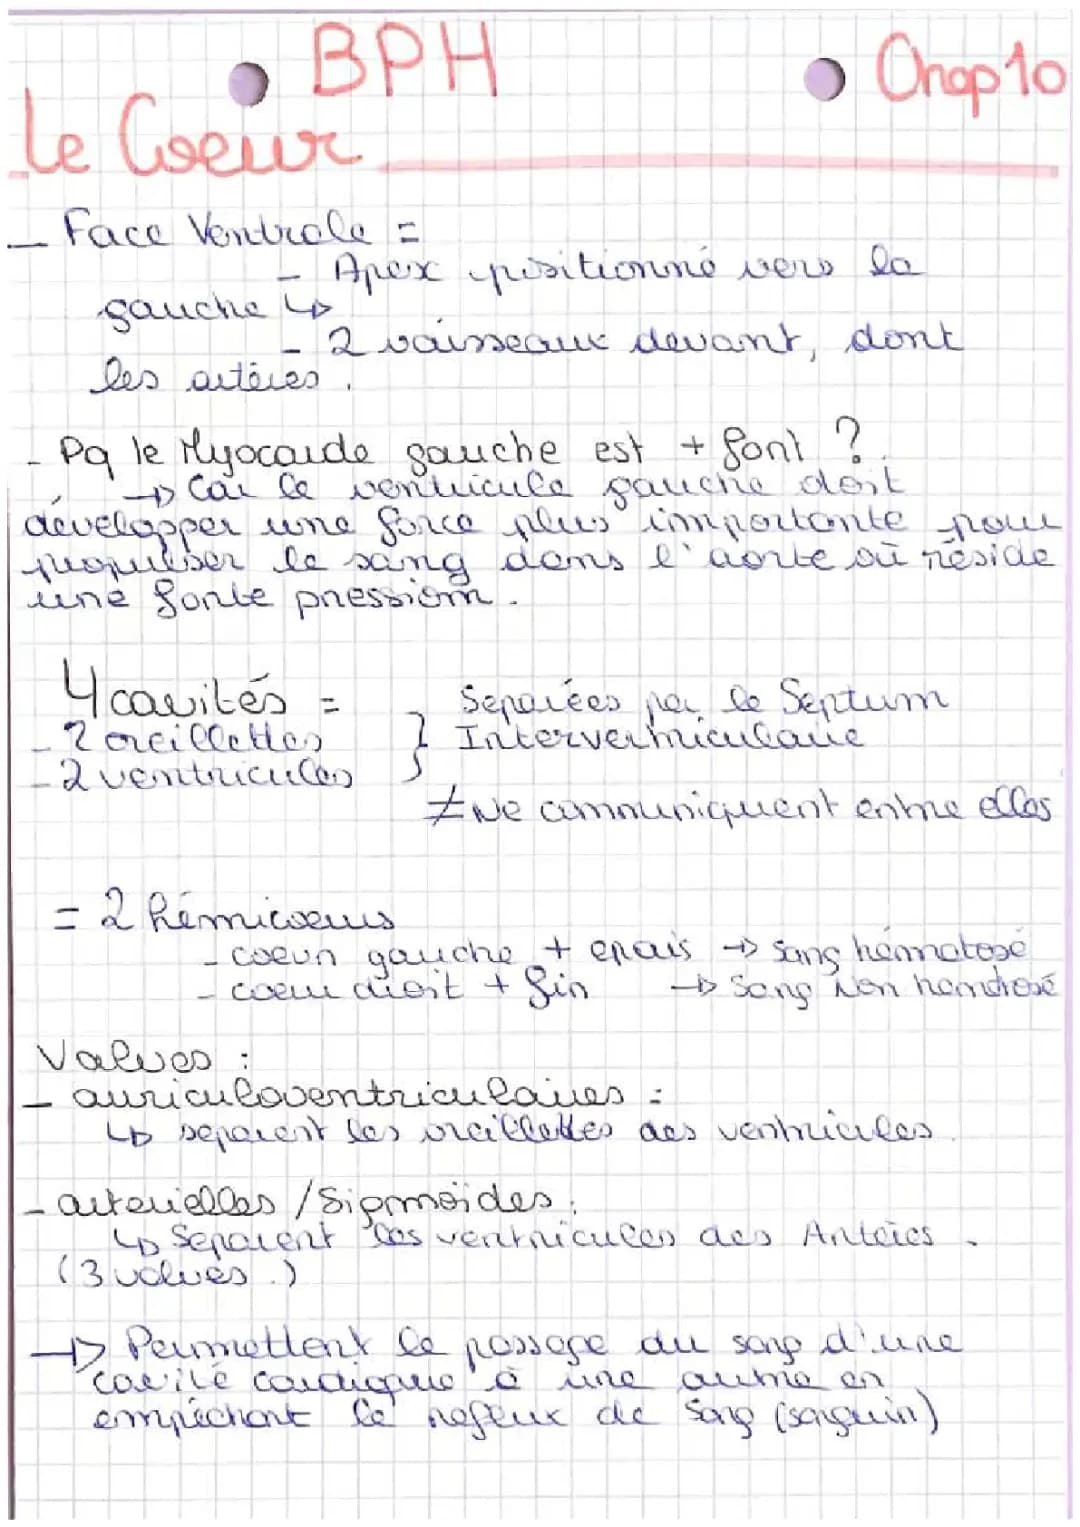 BPH
Chap 10
Le Coeur
- Face Ventrale =
- Apex positionné vers la
gauche ↳
- 2 vaisseaux devant, dont
les artères.
- Pq le Myocarde gauche est + fort ?
→ Car le ventricule gauche doit
développer une force plus importante pour
propulser le sang dans l'aorte où réside
une forte pression.
4 cavités =
- 2 oreillettes
- 2 ventricules
} Separées par le Septum
Interventriculaire
≠ Ne communiquent entre elles
= 2 hémicoeurs
- coeur gauche + epais → Sang hématosé
- coeur droit + fin → Sang Non hématosé
Valves :
- auriculoventriculaires :
↳ separent les oreillettes des ventricules.
- arterielles / Sigmoïdes :
↳ Separent les ventricules des Artères.
(3 valves.)
→ Permettent le passage du sang d'une
cavité cardiaque à une autre en
empêchant le reflux de Sang (sanguin)